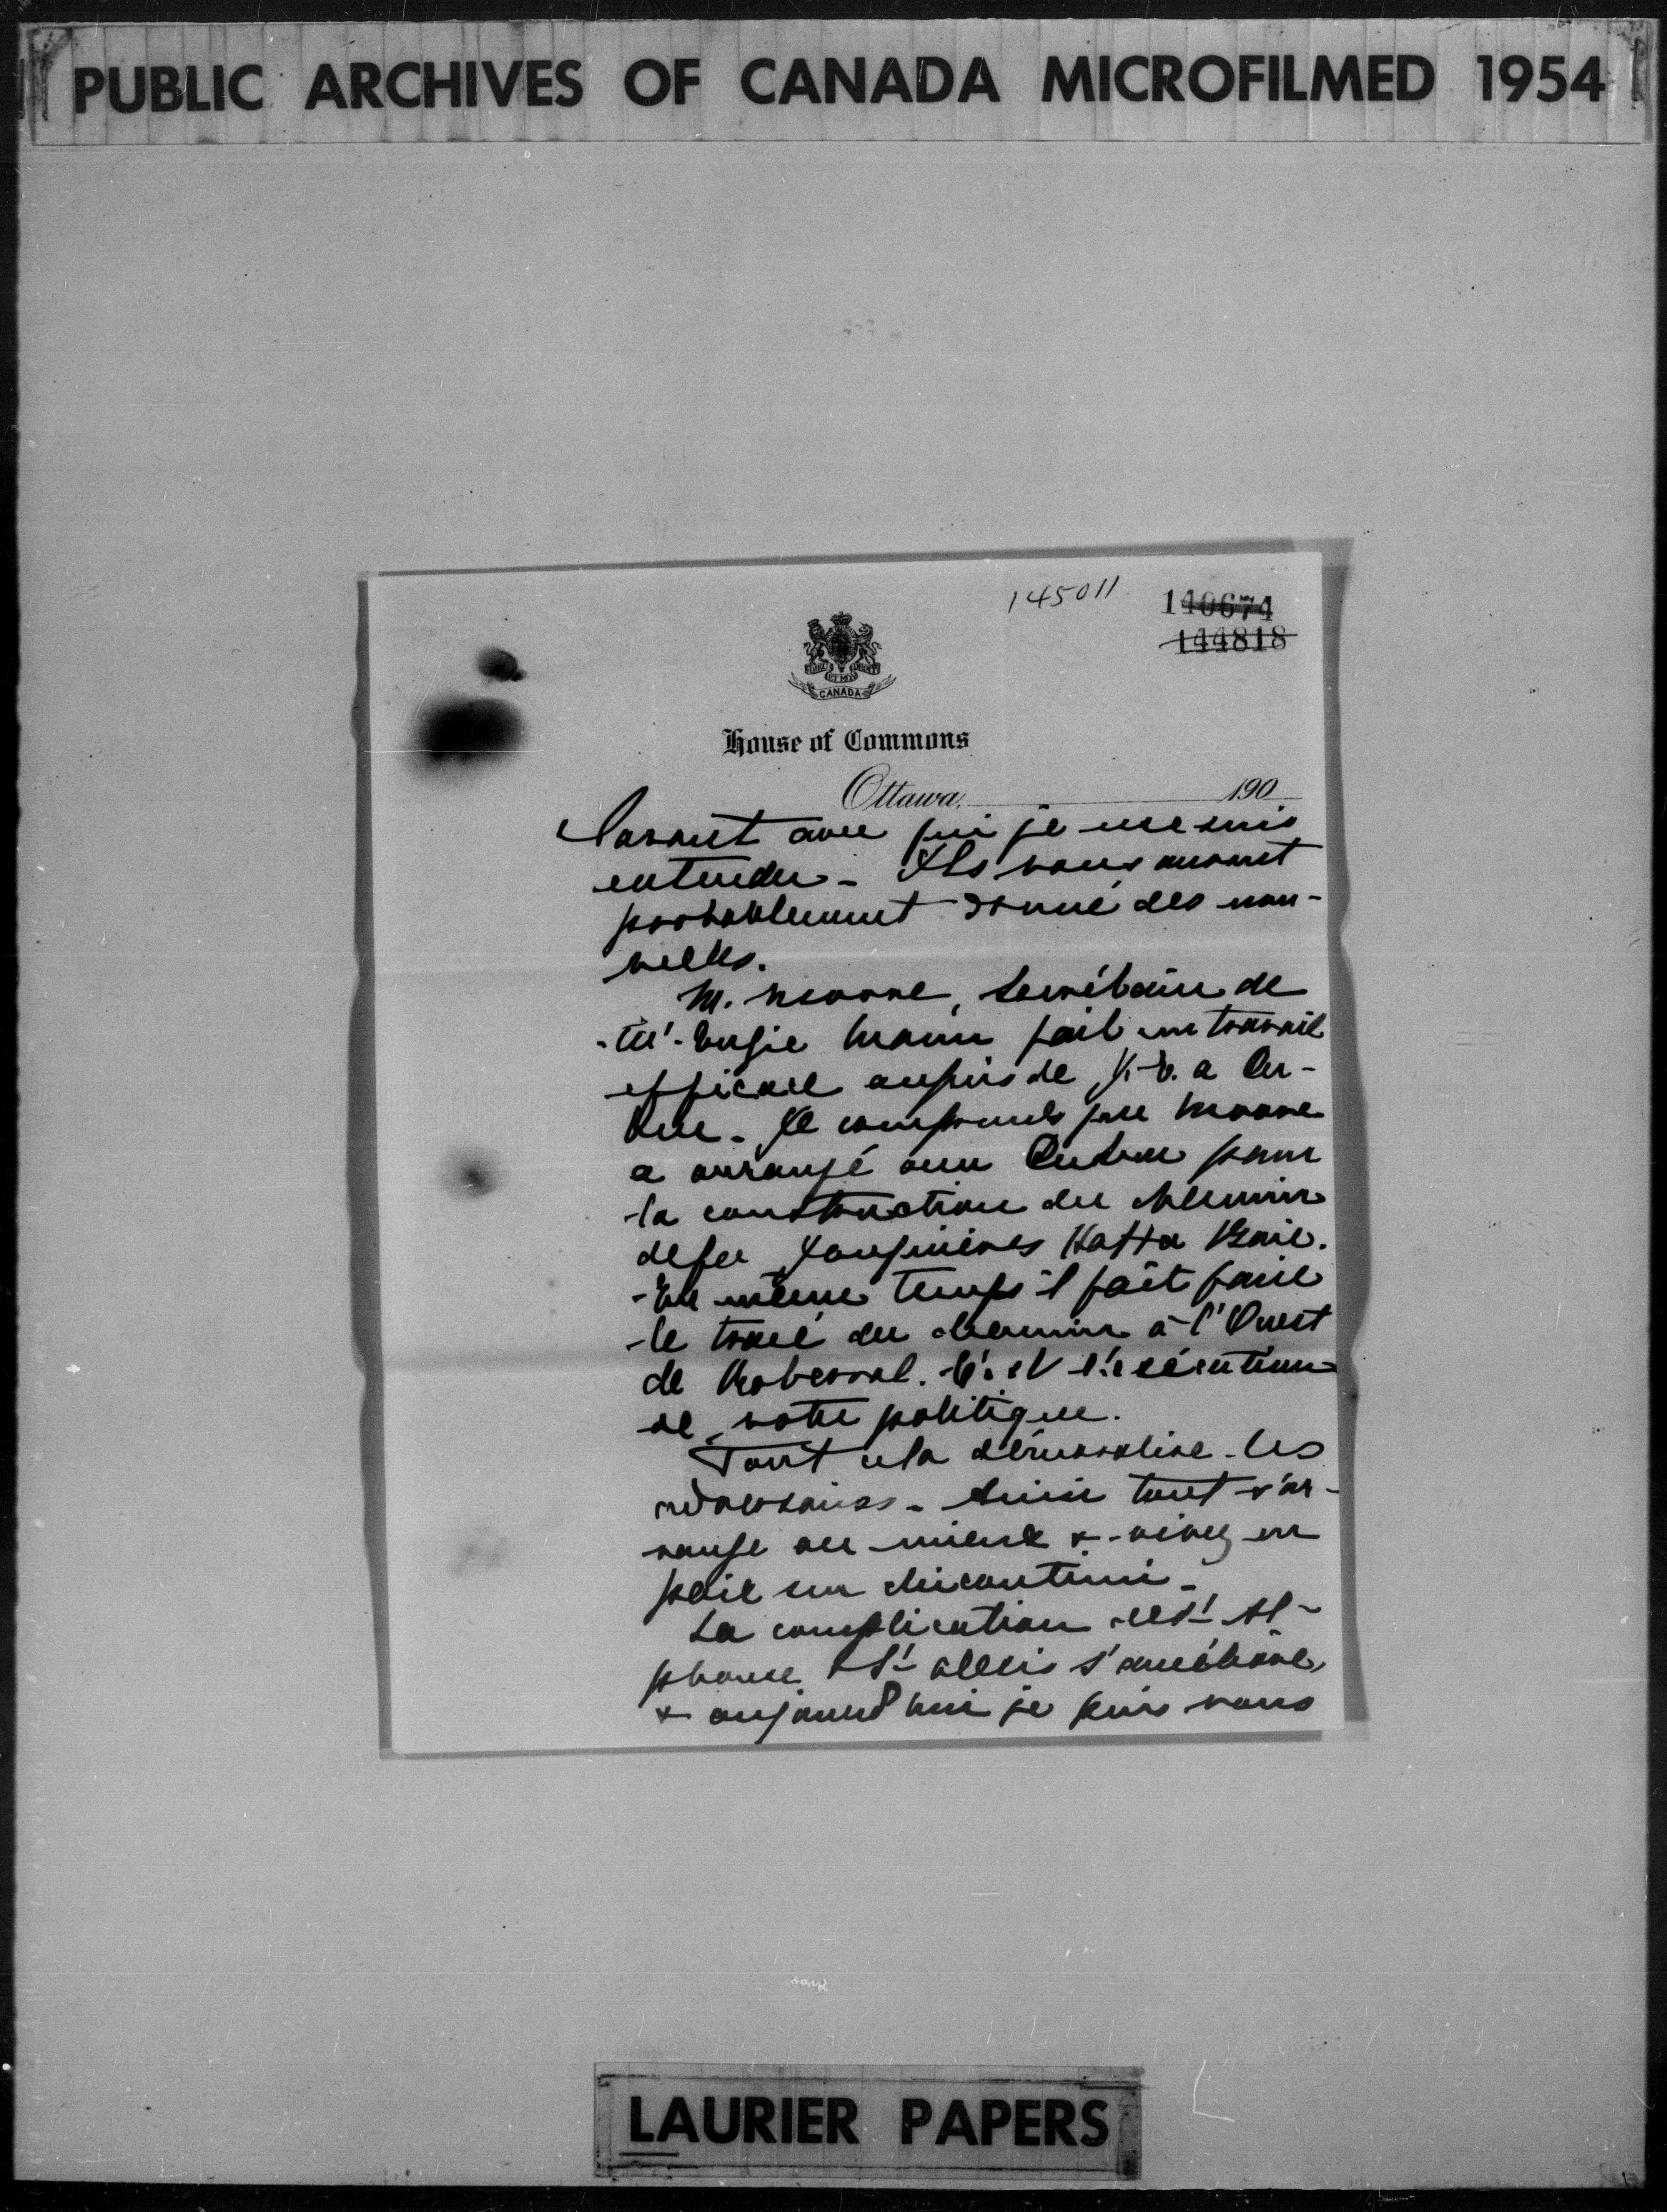 PUBLIC ARCHIVES OF CANADA MICROFILMED 1954
145011
140674
144818
CANADA
House of Commons
Ottawa, 190
avec qui je me suis
entendu - Ils vous auront
probablement donné des nou-
velles.
M. Moore, Secrétaire de
Mann fait un travail
efficace auprès de a Qué-
bec. Je comprends que Moore
a arrangé avec Québec pour
la construction du chemin
de fer Jonquières Ha Ha Baie.
En même temps il fait faire
le tracé du chemin à l'Ouest
de Roberval. C'est l'exécution
de votre politique.
Tout cela démoralise les
adversaires. Ainsi tout s'ar-
range au mieux & vivez en
paix sur Chicoutimi.
La complication de St Al-
phonse & St Alexis s'améliore,
& aujourd'hui je puis vous
LAURIER PAPERS